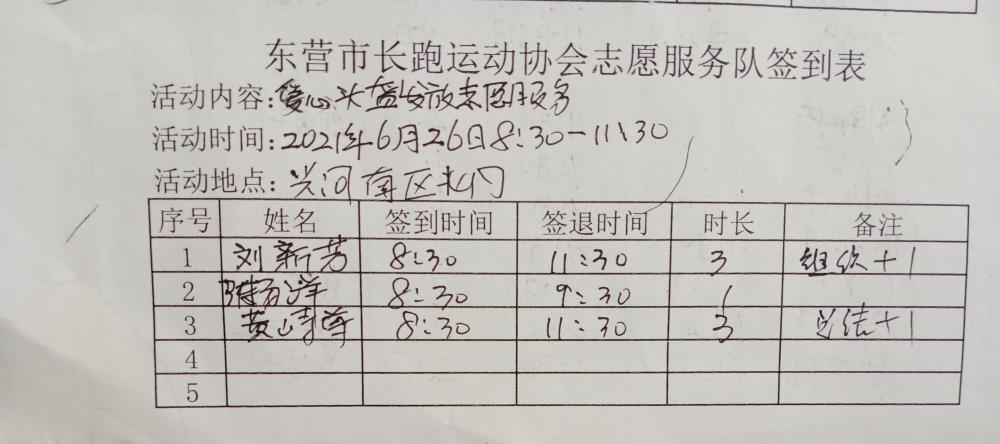 东营市长跑运动协会志愿服务队签到表
活动内容:爱心头盔发放志愿服务
活动时间:2021年6月26日8:30-11:30
活动地点:兴河南区北门
序号 姓名 签到时间 签退时间 时长 备注
1 刘新芳 8:30 11:30 3 组织+1
2 8:30 9:30 1
3 黄 8:30 11:30 3 总结+1
4
5